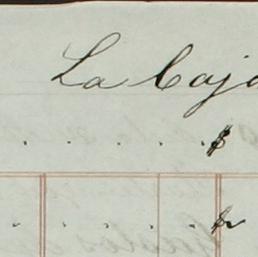 La Caja
. . . . . . $
. . . . . . $